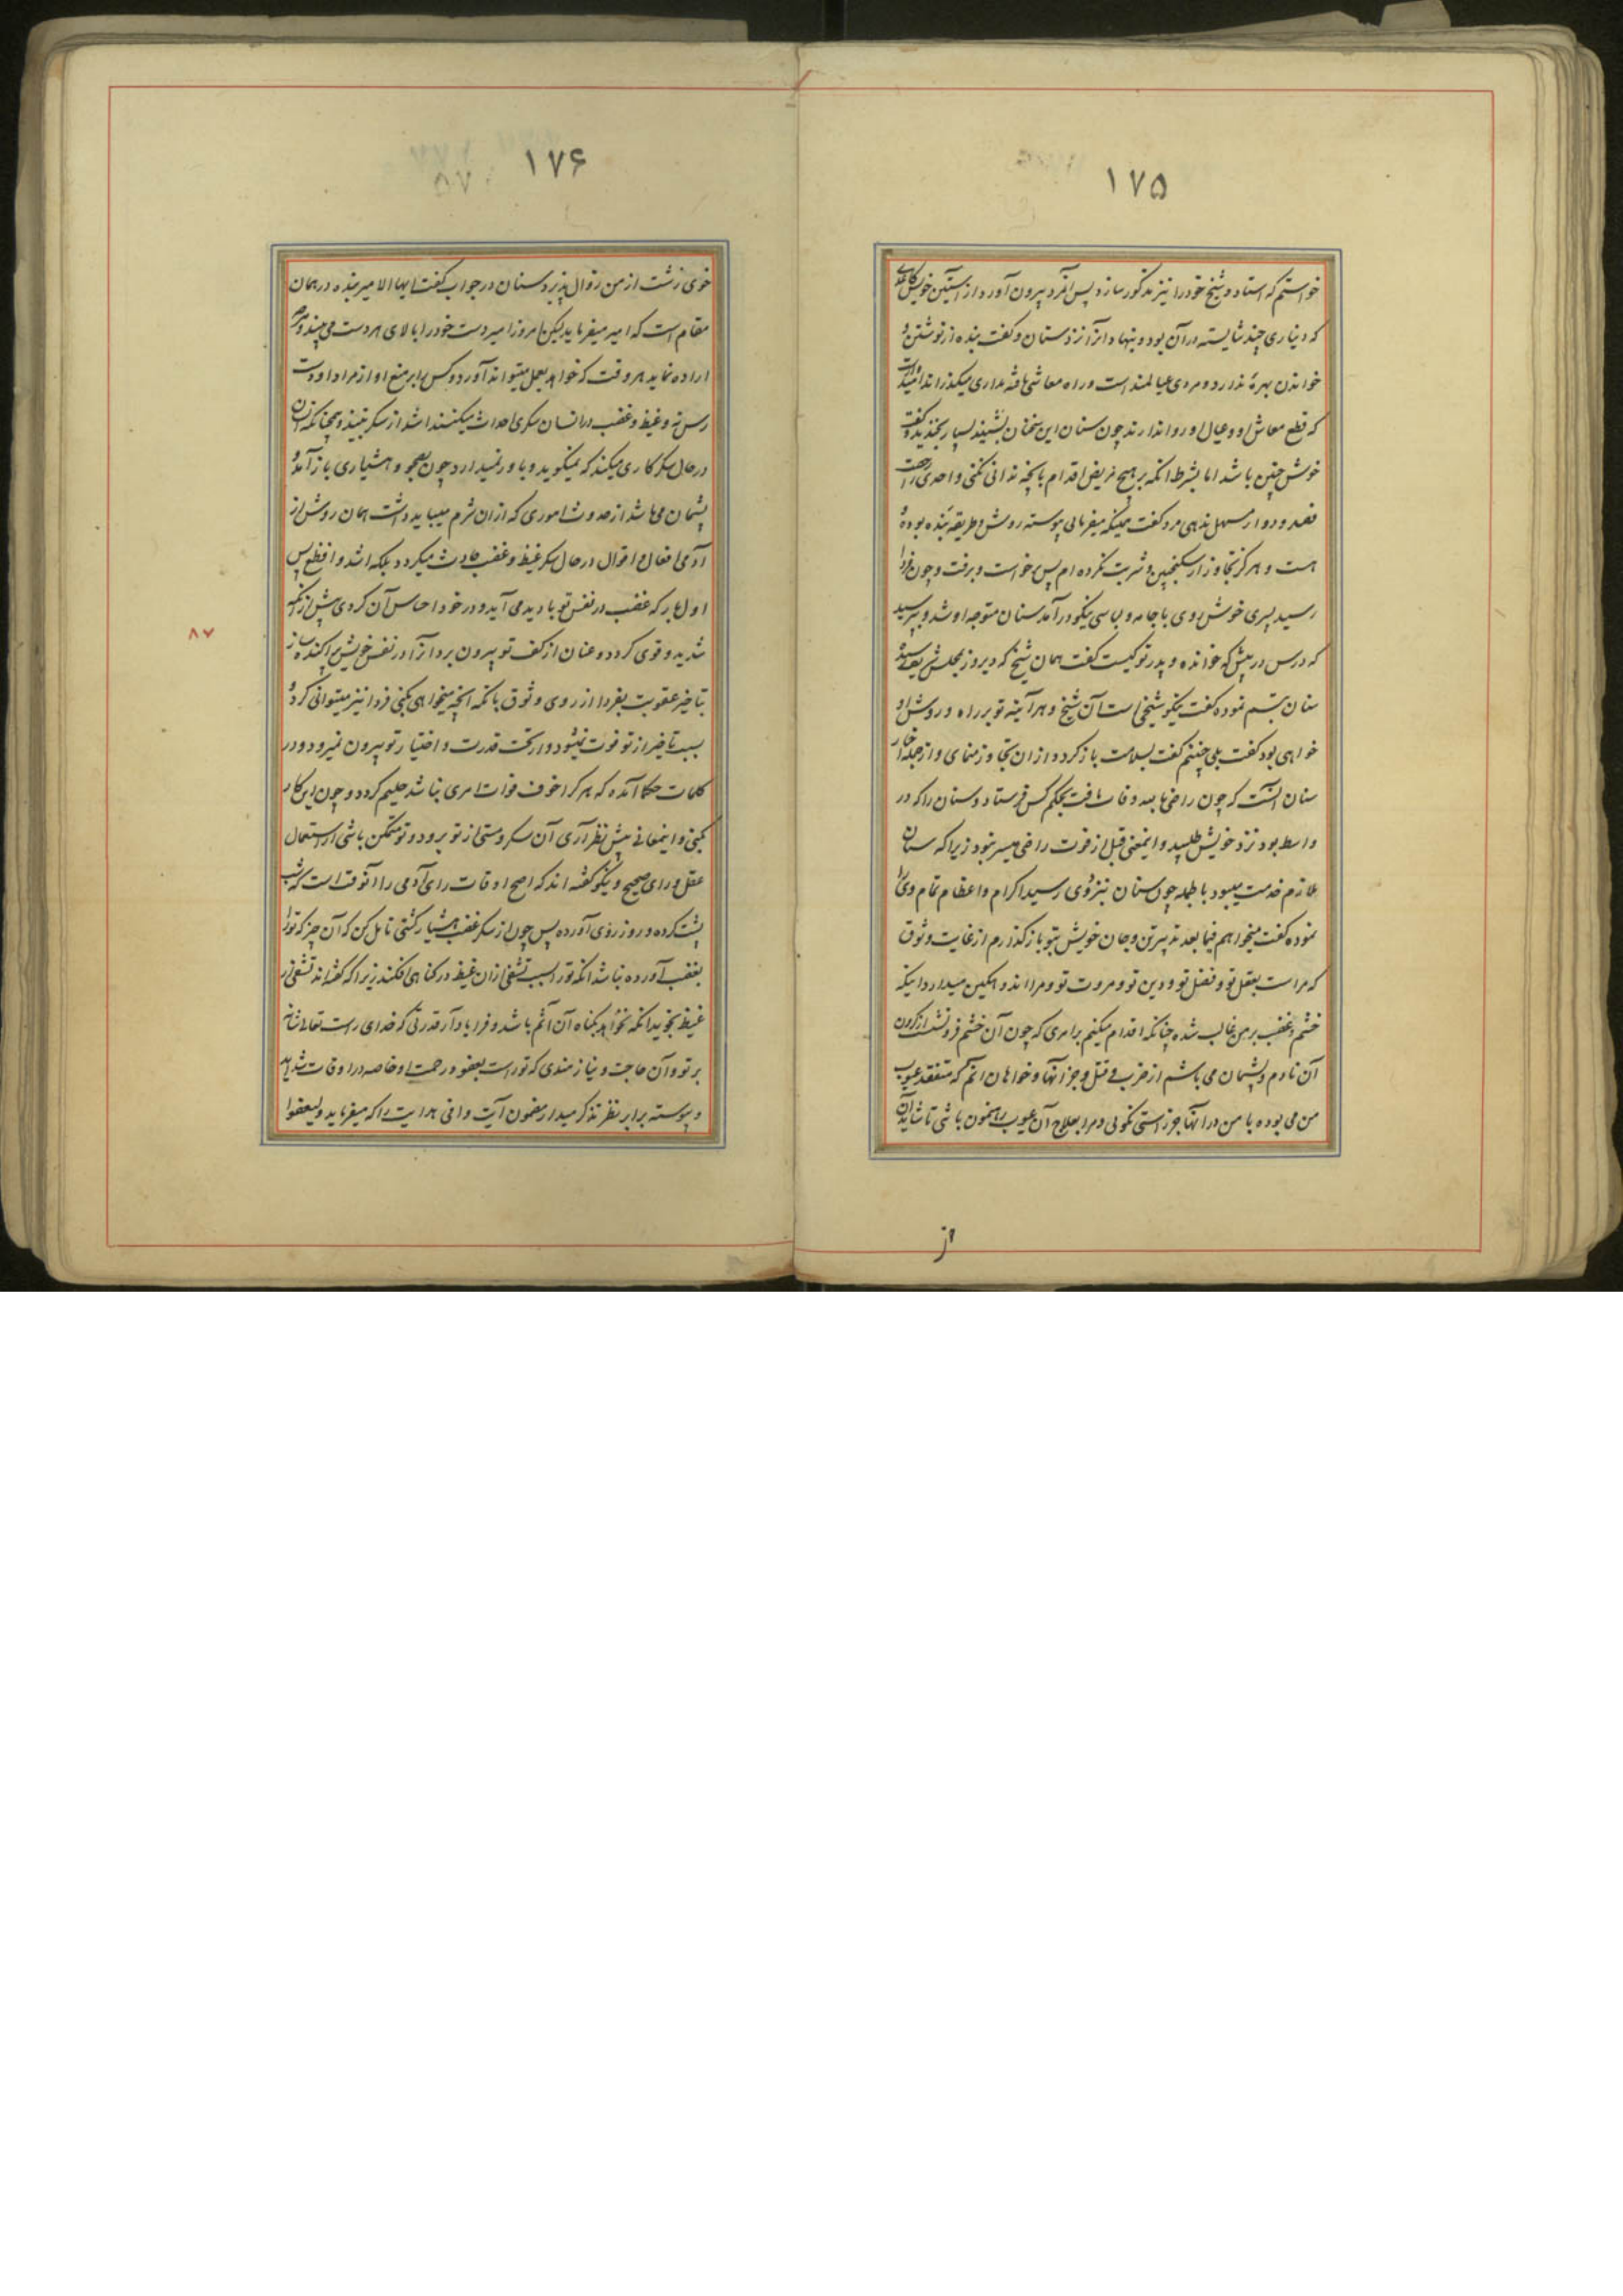 ۱۷۵
خواستم که استاد و شیخ خود را نیز مذکور سازد پس آنمرد بیرون آورد از آستین خویش کاغذی
که دیناری چند شایسته در آن بود و بنهاد آنرا نزد سنان و گفت بنده از نوشتن و
خواندن بهرهٔ ندارد و مردی عیالمند است و راه معاشی یافته بمداری میکذراند امید
که قطع معاش او و عیال او روا ندارند چون سنان این سخنان بشنید بسیار بخندید و گفت
خوش چنین باشد اما بشرط انکه بر هیچ مریض اقدام بانچه ندانی نکنی و احدی را
فصد و دوار مسهل ندهی مرد گفت همینکه میفرمائی پیوسته روش و طریقه بنده بوده
هست و هرکز تجاوز از سکنجبین و شربت نکرده ام پس خواست و برفت و چون فردا
رسید پسری خوش روی با جامه و لباسی نیکو در آمد سنان متوجه او شد و بپرسید
که درس در پیش که خوانده و پدر تو کیست گفت همان شیخ که دیروز بمجلس شریف رسید
سنان تبسم نموده گفت نیکو شیخی است آن شیخ و هر آینه تو بر راه و روش او
خواهی بود گفت بلی چنینم گفت بسلامت باز کرد و از ان تجاوز منمای و از جمله اخبار
سنان آنست که چون راضی بالله وفات یافت بجکم کس فرستاد و سنان را که در
واسط بود نزد خویش طلبید و اینمعنی قبل از فوت راضی میسر نبود زیرا که سنان
ملازم خدمت میبود بالجمله چون سنان بنزد وی رسید اکرام و اعظام تمام وی را
نموده گفت میخواهم فیما بعد تدبیر تن و جان خویش بتو باز گذارم از غایت وثوق
که مراست بعقل تو و فضل تو و دین تو و مروت تو و مرا اندوهکین میدارد اینکه
خشم و غضب بر من غالب شده چنانکه اقدام میکنم بر امری که چون آن خشم فرو نشست از کردن
آن نادم و پشیمان می باشم از ضرب و قتل و جز آنها و خواهان انم که متفقد عیوب
من می بوده با من در آنها جز راستی نکوئی و مرا بعلاج آن عیوب رهنمون باشی تا شاید آن
از
۱۷۶
خوی زشت از من زوال پذیرد سنان در جواب گفت ایها الامیر بنده در همان
مقام است که امیر میفرماید لیکن امروز امیر دست خود را بالای هر دست می بیند و هرچه
اراده نماید هر وقت که خواهد بعمل میتواند آورد و کس برابر منع او از مراد او دست
رس نه و غیظ و غضب در انسان سکری احداث میکنند اشد از سکر نبیذ و همچنانکه انسان
در حال سکر کاری میکند که نمیگوید و باور نمیدارد چون بصحو و هشیاری باز آمد و
پشیمان می باشد از حدوث اموری که از ان شرم میباید داشت همان روش از
آدمی افعال و اقوال در حال سکر غیظ و غضب حادث میگردد بلکه اشد و افظع پس
اول بار که غضب در نفس تو بادید می آید و در خود احساس آن کردی پیش از آنکه
شدید و قوی کردد و عنان از کف تو بیرون برد آنرا در نفس خویش پراکنده ساز
۸۷
بتاخیر عقوبت بفردا از روی وثوق بانکه انچه میخواهی بکنی فردا نیز میتوانی کرد و
بسبب تاخیر از تو فوت نمیشود و از تحت قدرت و اختیار تو بیرون نمیرود و در
کلمات حکما آمده که هر کرا خوف فوات امری نباشد حلیم کردد و چون این کار
بکنی و اینمعانی پیش نظر آری آن سکر و مستی از تو برود و تو متمکن باشی از استعمال
عقل و رای صحیح و نیکو گفته اند که اصح اوقات رای آدمی را آنوقت است که شب
پشت کرده و روز روی آورده پس چون از سکر غضب هشیار گشتی تامل کن که آن چیز که ترا
بغضب آورده نباشد انکه ترا بسبب تشفی از ان غیظ در کناهی افکند زیرا که گفته اند تشفی از
غیظ بخوید انکه نخواهد بگناه آن آثم باشد و فرا یاد آر قدرتی که خدای راست تعالی شانه
بر تو و آن حاجت و نیازمندی که تو راست بعفو و رحمت او خاصه در اوقات شداید
و پیوسته برابر نظر تذکر میدار مضمون آیت وافی هدایت را که میفرماید ولیعفوا